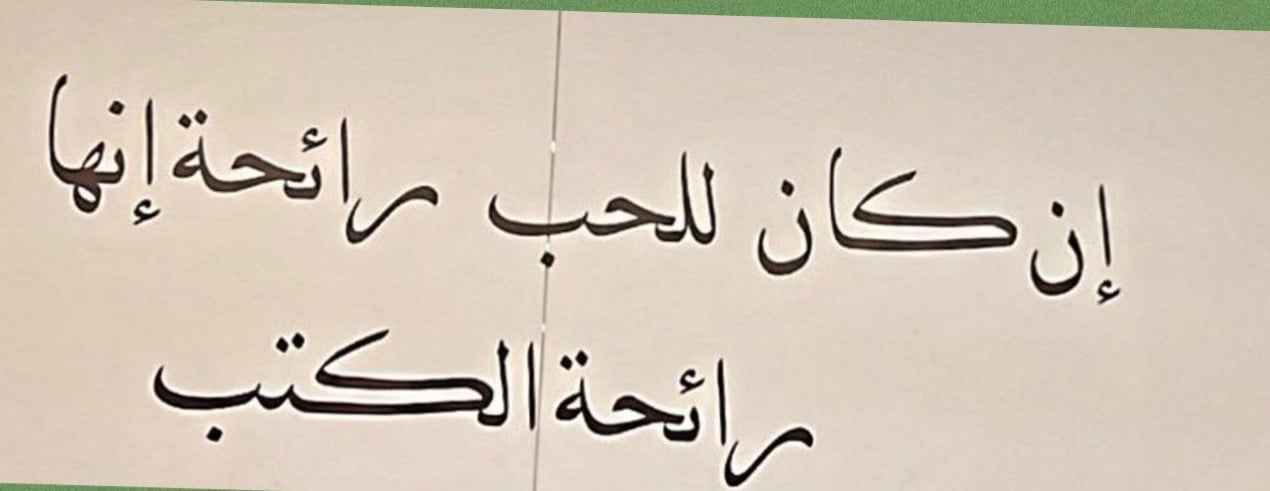 إن كان للحب رائحة إنها
رائحة الكتب